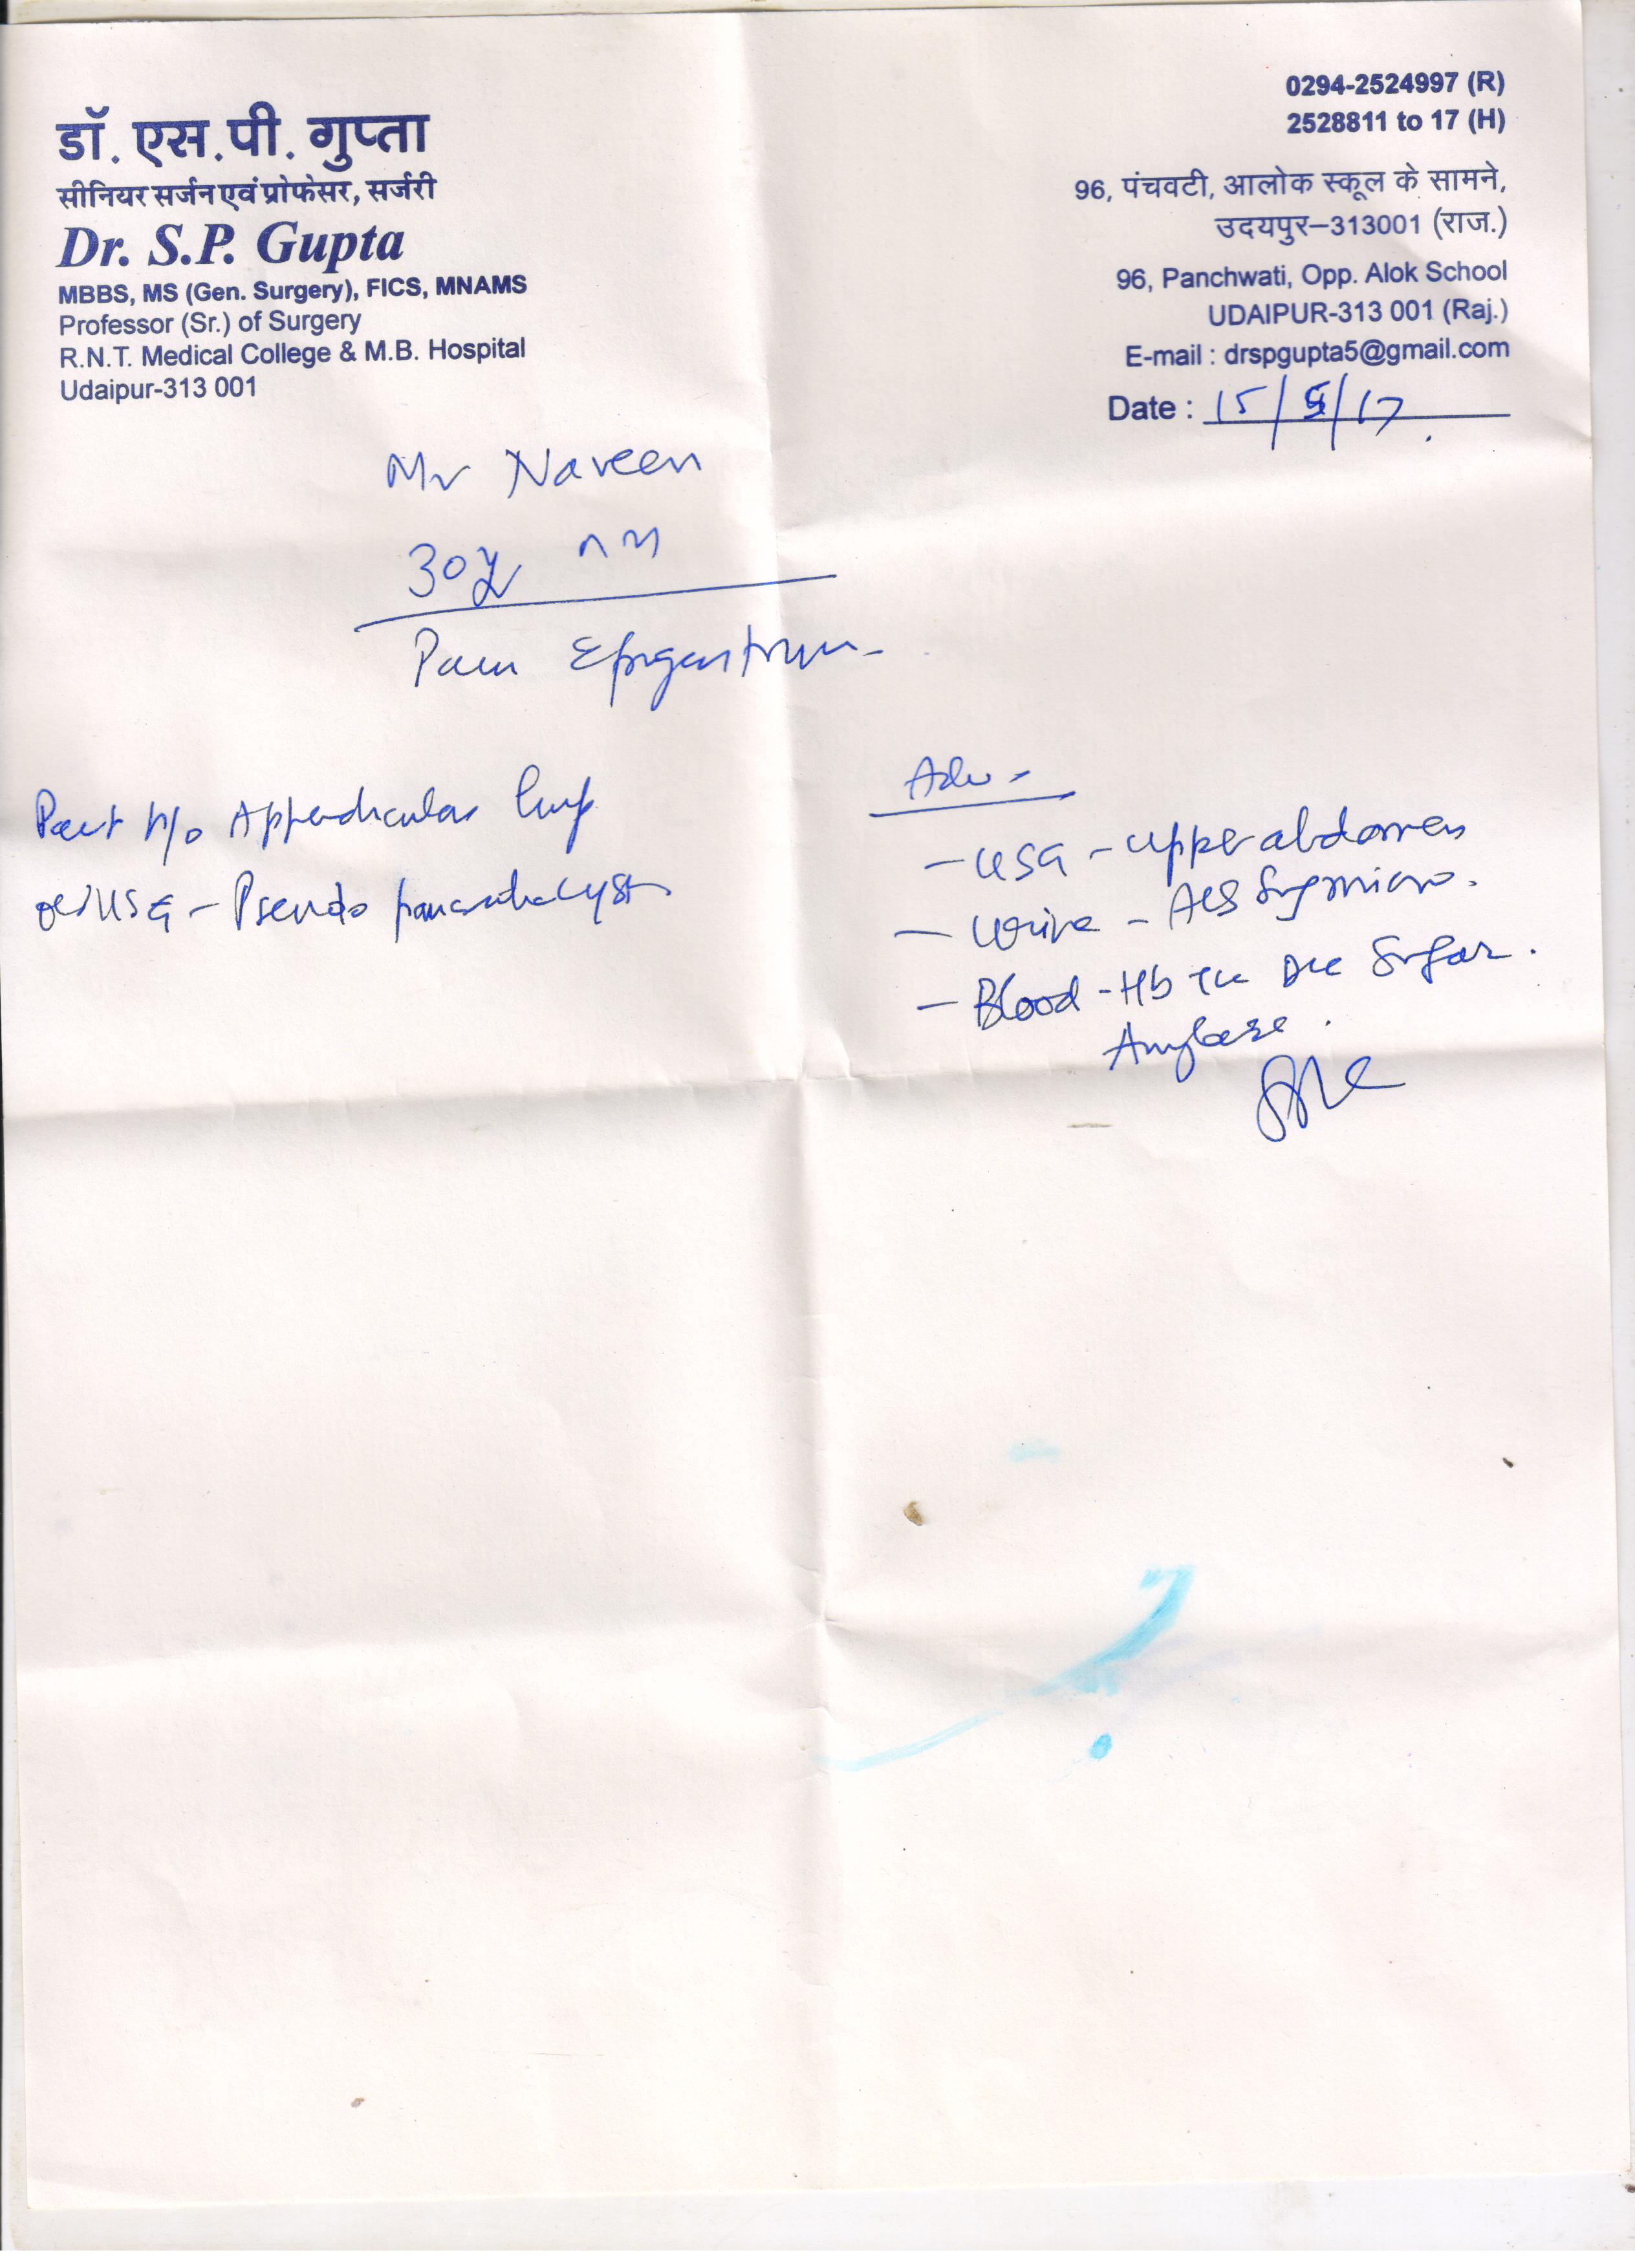 डॉ. एस.पी. गुप्ता
सीनियर सर्जन एवं प्रोफेसर, सर्जरी
Dr. S.P. Gupta
MBBS, MS (Gen. Surgery), FICS, MNAMS
Professor (Sr.) of Surgery
R.N.T. Medical College & M.B. Hospital
Udaipur-313 001
0294-2524997 (R)
2528811 to 17 (H)
96, पंचवटी, आलोक स्कूल के सामने,
उदयपुर–313001 (राज.)
96, Panchwati, Opp. Alok School
UDAIPUR-313 001 (Raj.)
E-mail : drspgupta5@gmail.com
Date : 15/5/17
Mr Naveen
30y
Pain Epigastrium
Past h/o Appendicular lump
USG - Pseudo pancreatic cyst
Adv -
- USG - upper abdomen
- Urine - Alb Sug micro.
- Blood - Hb TLC DLC Sugar.
Amylase.